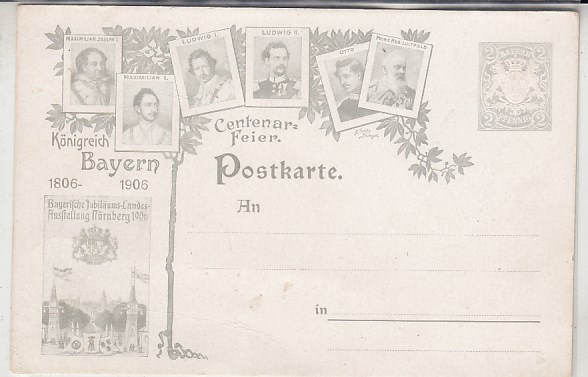 MAXIMILIAN JOSEPH I.
MAXIMILIAN II.
LUDWIG I.
LUDWIG II.
OTTO
PRINZ-REG. LUITPOLD
Königreich
Bayern
1806-1906
Centenar-
Feier.
Postkarte.
An
in
BAYERN
2 2
2 2
PFENNIG
Bayerische Jubiläums-Landes-
Ausstellung Nürnberg 1906